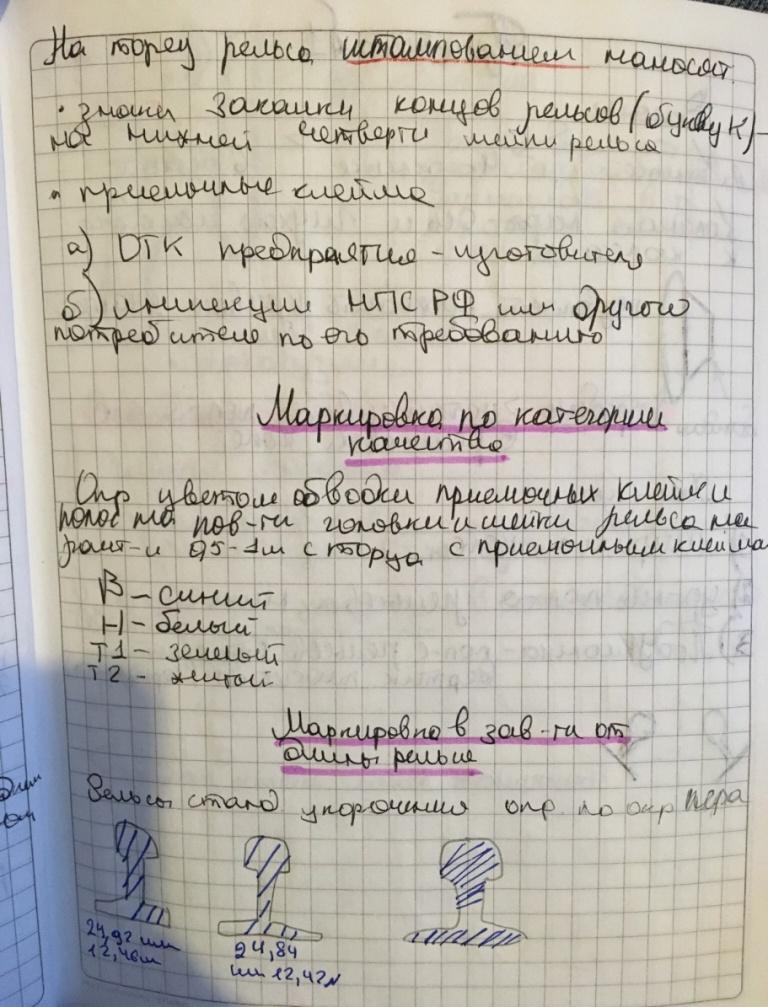 На торец рельса штампованием наносят:
• знаки закалки концов рельсов (букву К) –
на нижней четверти шейки рельса
• приемочные клейма
а) ОТК предприятия - изготовителя
б) инспекции МПС РФ или другого
потребителя по его требованию
Маркировка по категории
качества
Опр цветом обводки приемочных клейм и
полос на пов-ти головки и шейки рельса на
раст-и 0,5-1м с торца с приемочным клеймом
В – синий
Н – белый
Т1 – зеленый
Т2 - желтый
Маркировка в зав-ти от
длины рельса
Рельсы станд укорочения опр по окр пера
24,92 или
12,46м
24,84
или 12,42м